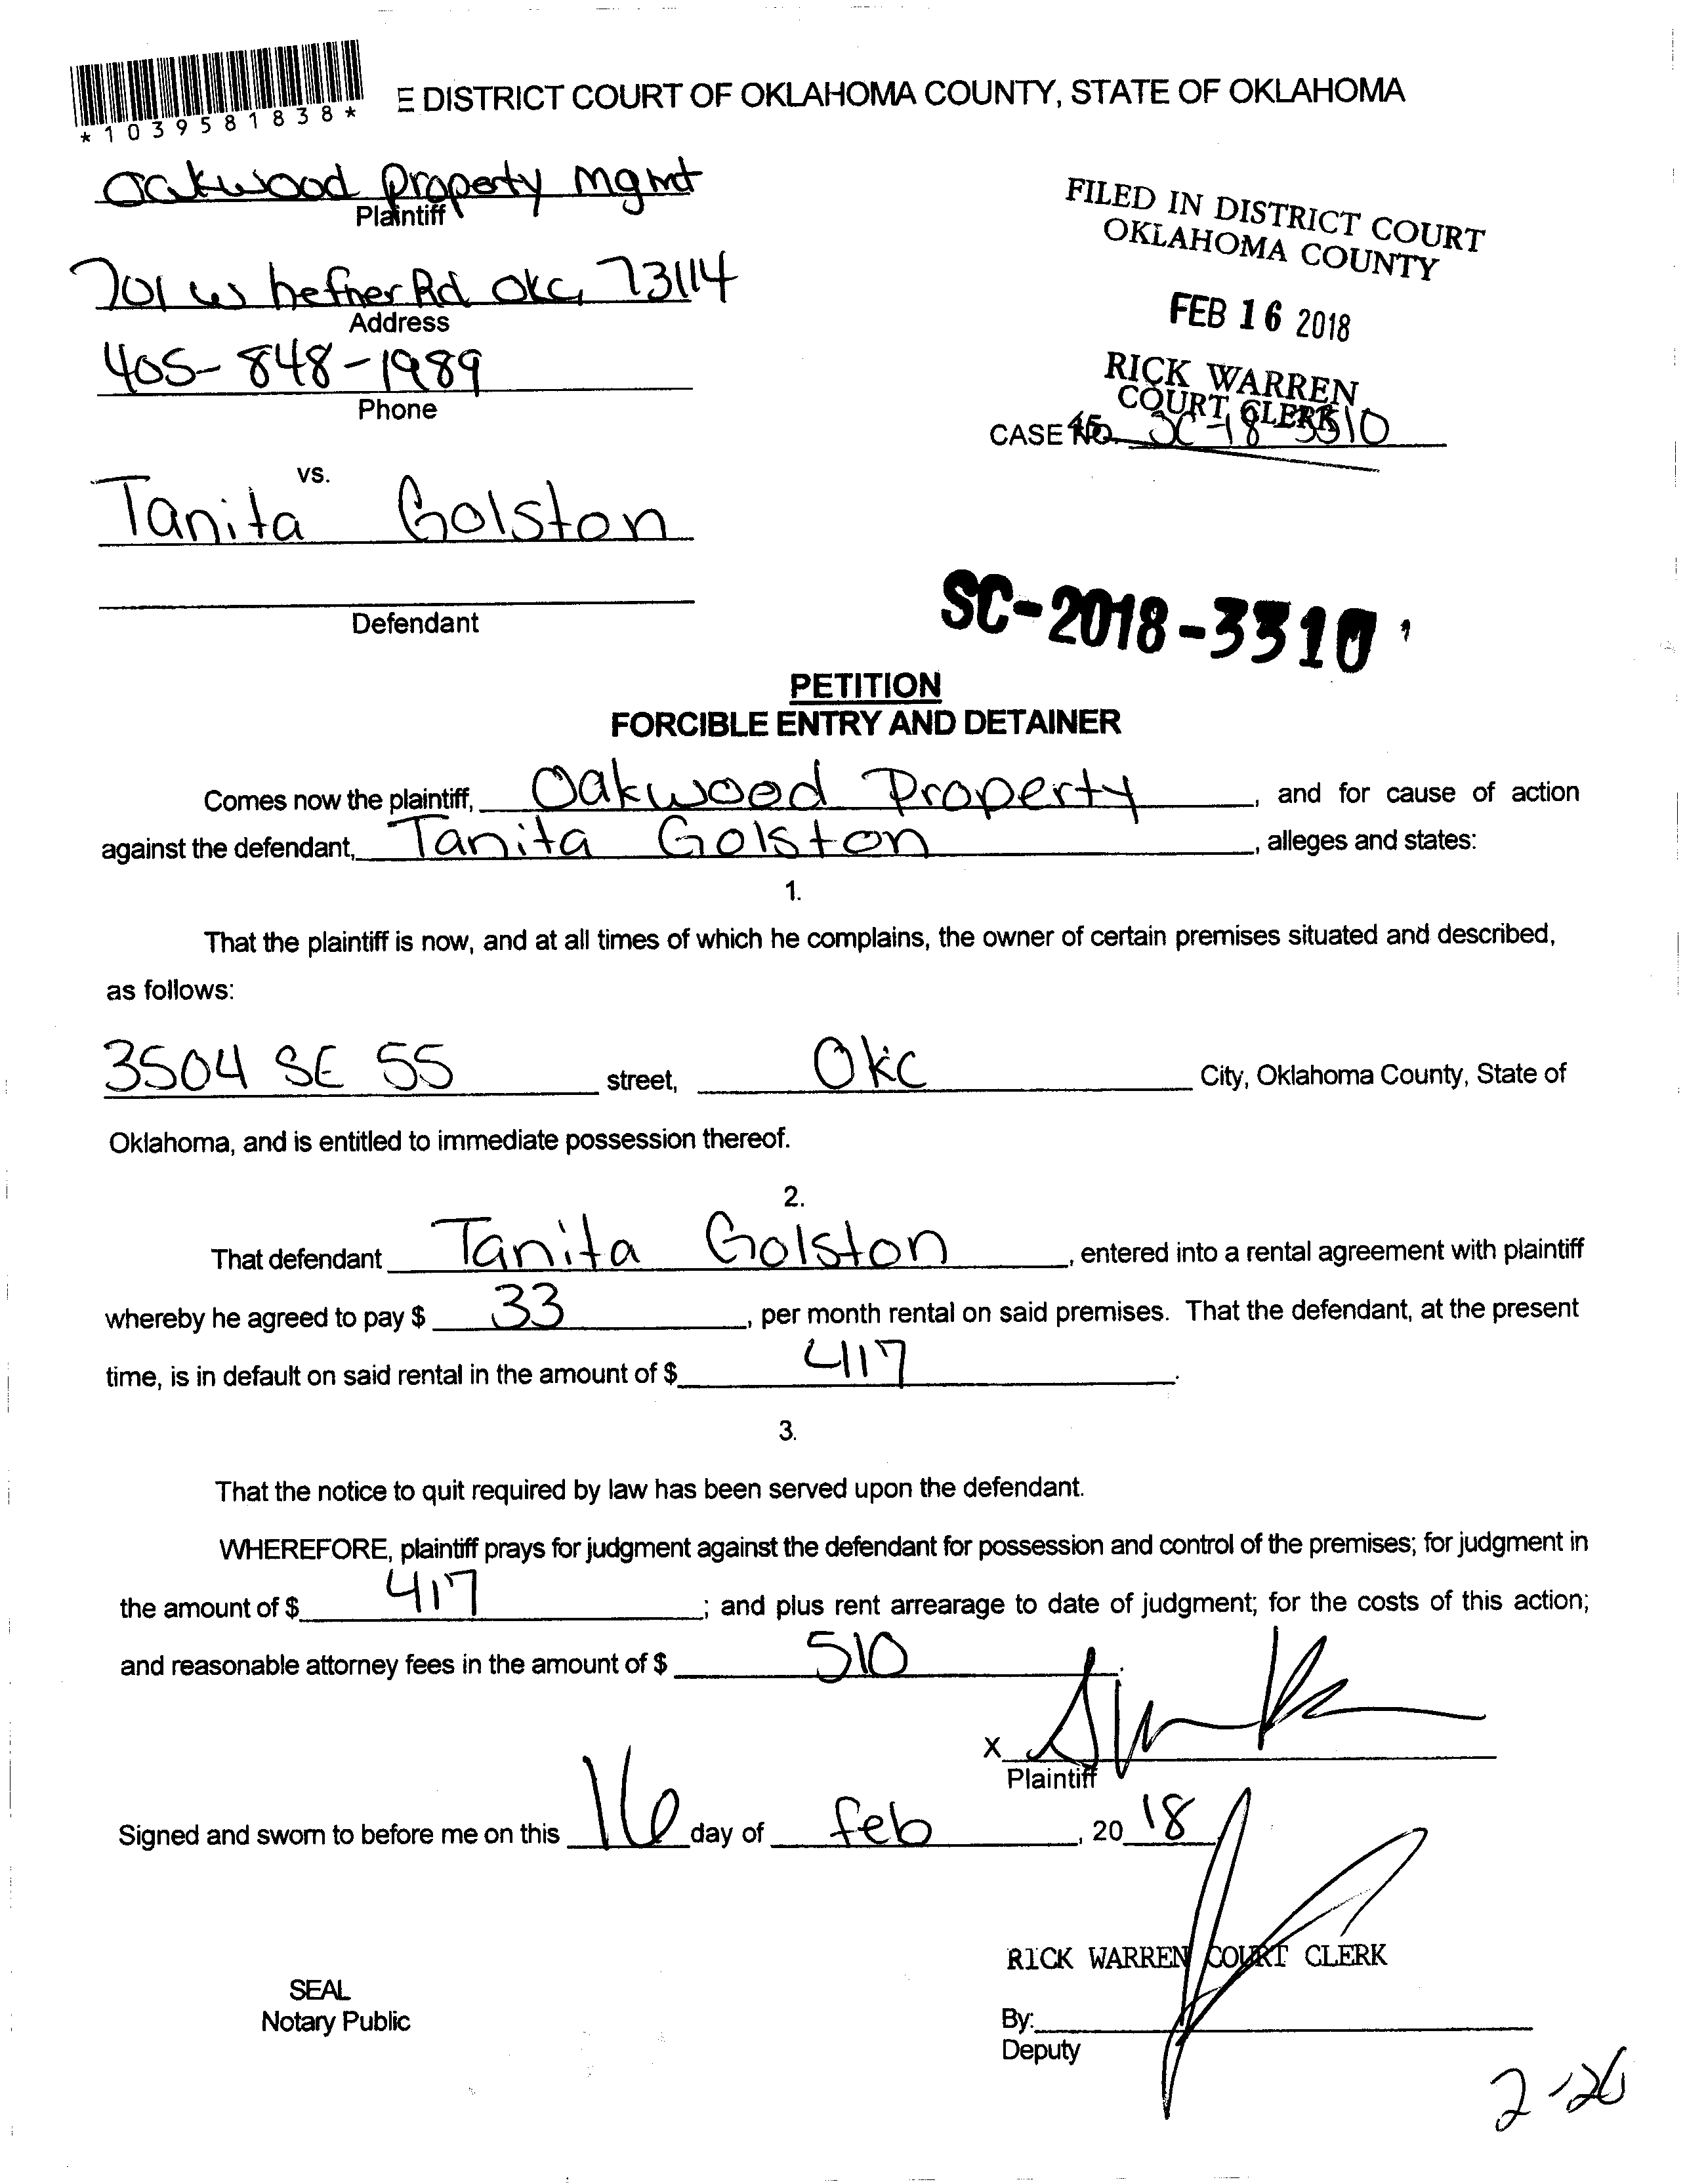 *1039581838*
E DISTRICT COURT OF OKLAHOMA COUNTY, STATE OF OKLAHOMA
Oakwood Property Mgmt
Plaintiff
701 W hefner Rd OKC, 73114
Address
405-848-1989
Phone
FILED IN DISTRICT COURT
OKLAHOMA COUNTY
FEB 16 2018
RICK WARREN
COURT CLERK
45
CASE NO. SC-18-3310
vs.
Tanita Golston
Defendant
SC-2018-3310
PETITION
FORCIBLE ENTRY AND DETAINER
Comes now the plaintiff, Oakwood Property, and for cause of action
against the defendant, Tanita Golston, alleges and states:
1.
That the plaintiff is now, and at all times of which he complains, the owner of certain premises situated and described,
as follows:
3504 SE 55 street, OKC City, Oklahoma County, State of
Oklahoma, and is entitled to immediate possession thereof.
2.
That defendant Tanita Golston, entered into a rental agreement with plaintiff
whereby he agreed to pay $ 33, per month rental on said premises. That the defendant, at the present
time, is in default on said rental in the amount of $ 417.
3.
That the notice to quit required by law has been served upon the defendant.
WHEREFORE, plaintiff prays for judgment against the defendant for possession and control of the premises; for judgment in
the amount of $ 417; and plus rent arrearage to date of judgment; for the costs of this action;
and reasonable attorney fees in the amount of $ 510.
X
Plaintiff
Signed and sworn to before me on this 16 day of feb, 20 18
RICK WARREN COURT CLERK
SEAL
Notary Public
By:
Deputy
2-26